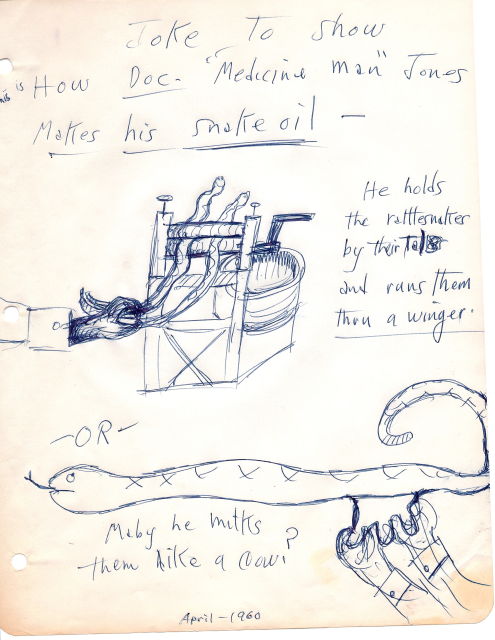 Joke To show
This is How Doc. "Medicine man" Jones
Makes his snake oil —
He holds
the rattlesnakes
by their tails
and runs them
thru a winger.
-OR-
Maby he milks
them like a cow?
April - 1960